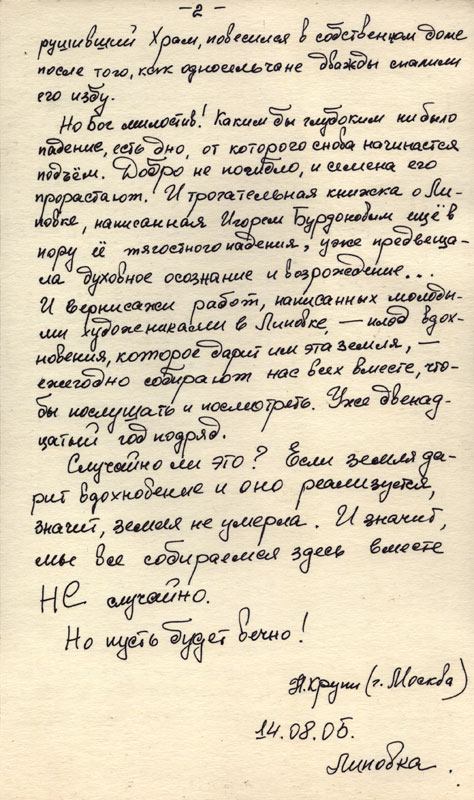 – 2 –
рушивший Храм, повесился в собственном доме
после того, как односельчане дважды спалили
его избу.
Но Бог милостив! Каким бы глубоким ни было
падение, есть дно, от которого снова начинается
подъём. Добро не погибло, и семена его
прорастают. И трогательная книжка о Ли-
повке, написанная Игорем Бурдоновым ещё в
пору её тягостного падения, уже предвеща-
ла духовное осознание и возрождение...
И вернисажи работ, написанных молоды-
ми художниками в Липовке, – плод вдох-
новения, которое дарит им эта земля, –
ежегодно собирают нас всех вместе, что-
бы послушать и посмотреть. Уже двенад-
цатый год подряд.
Случайно ли это? Если земля да-
рит вдохновение и оно реализуется,
значит, земля не умерла. И значит,
мы все собираемся здесь вместе
НЕ случайно.
Но пусть будет вечно!
(г. Москва)
14.08.05.
Липовка.